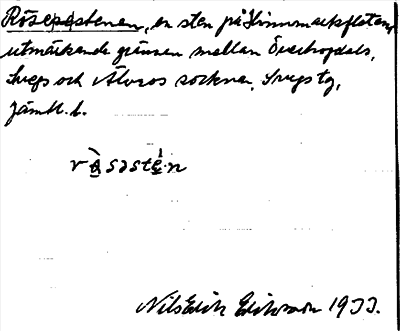 Röseststenen, en sten på Himmarksflatan,
utmärkande gränsen mellan Överhogdals,
Svegs och Älvros socknar, Svegs tg,
Jämtl. l.
Nils Erik Eriksson 1933.